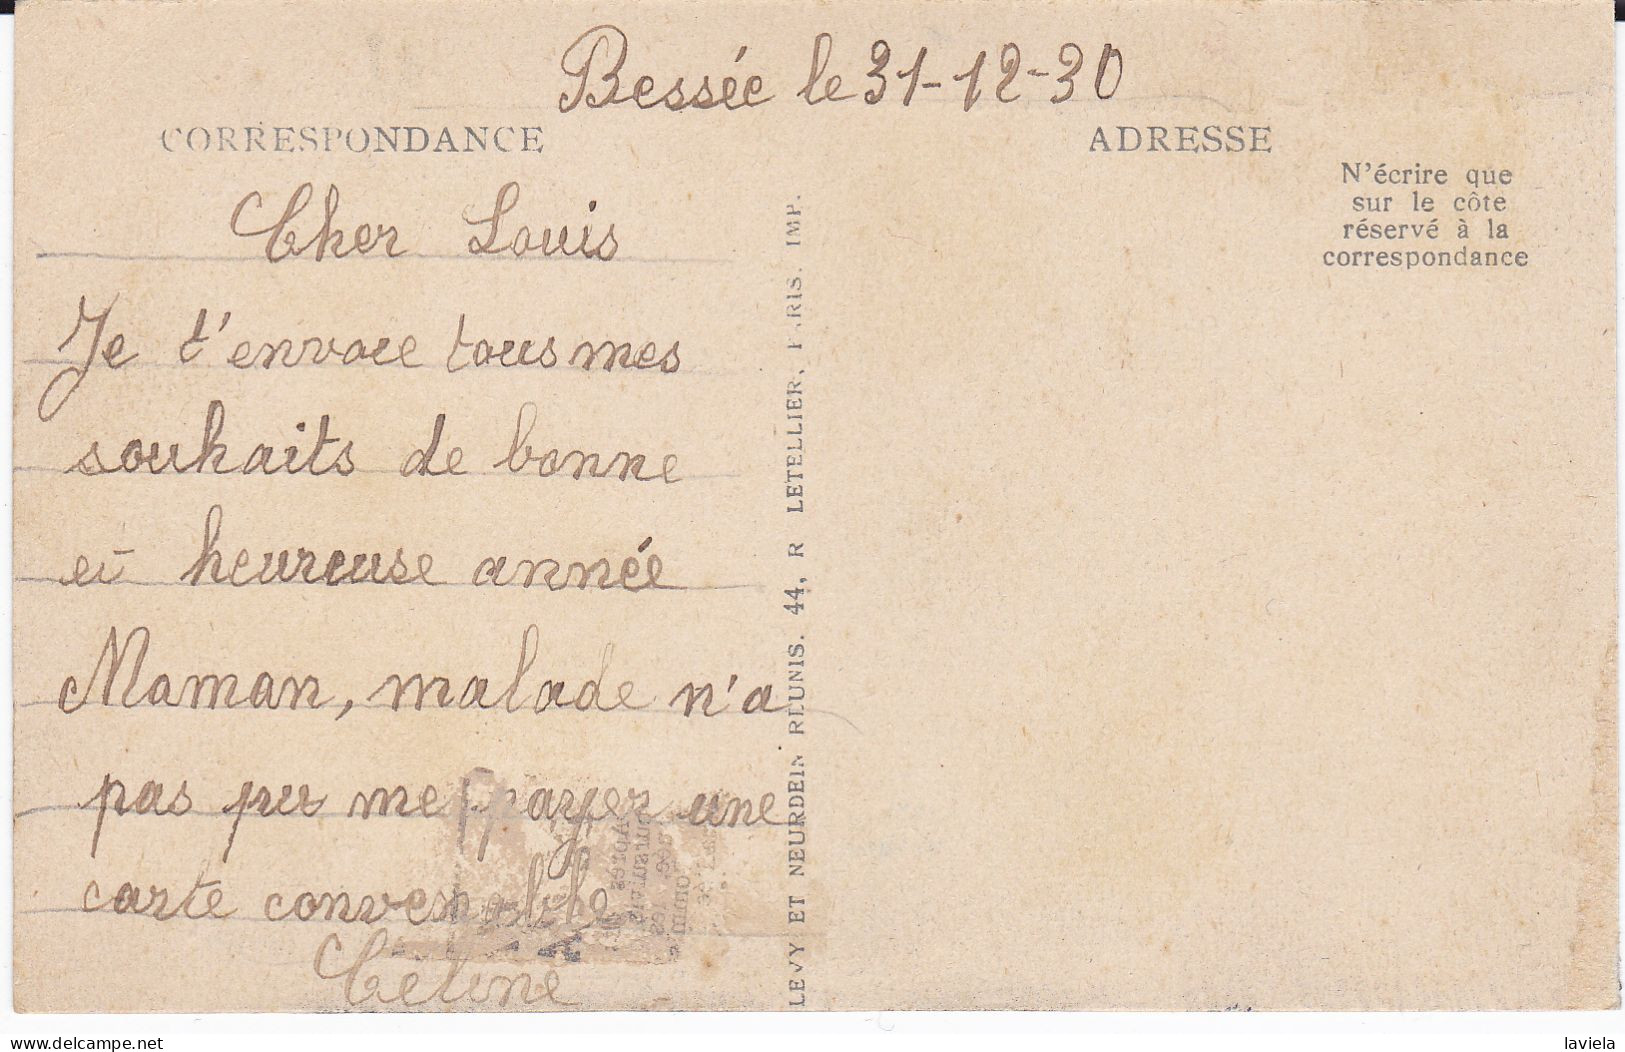 Bessée le 31-12-30
CORRESPONDANCE
ADRESSE
N'écrire que
sur le côte
réservé à la
correspondance
Cher Louis
Je t'envoie tous mes
souhaits de bonne
et heureuse année
Maman, malade n'a
pas pu me payer une
carte convenable
Céline
LEVY ET NEURDEIN RÉUNIS. 44, R LETELLIER, PARIS. IMP.
laviela